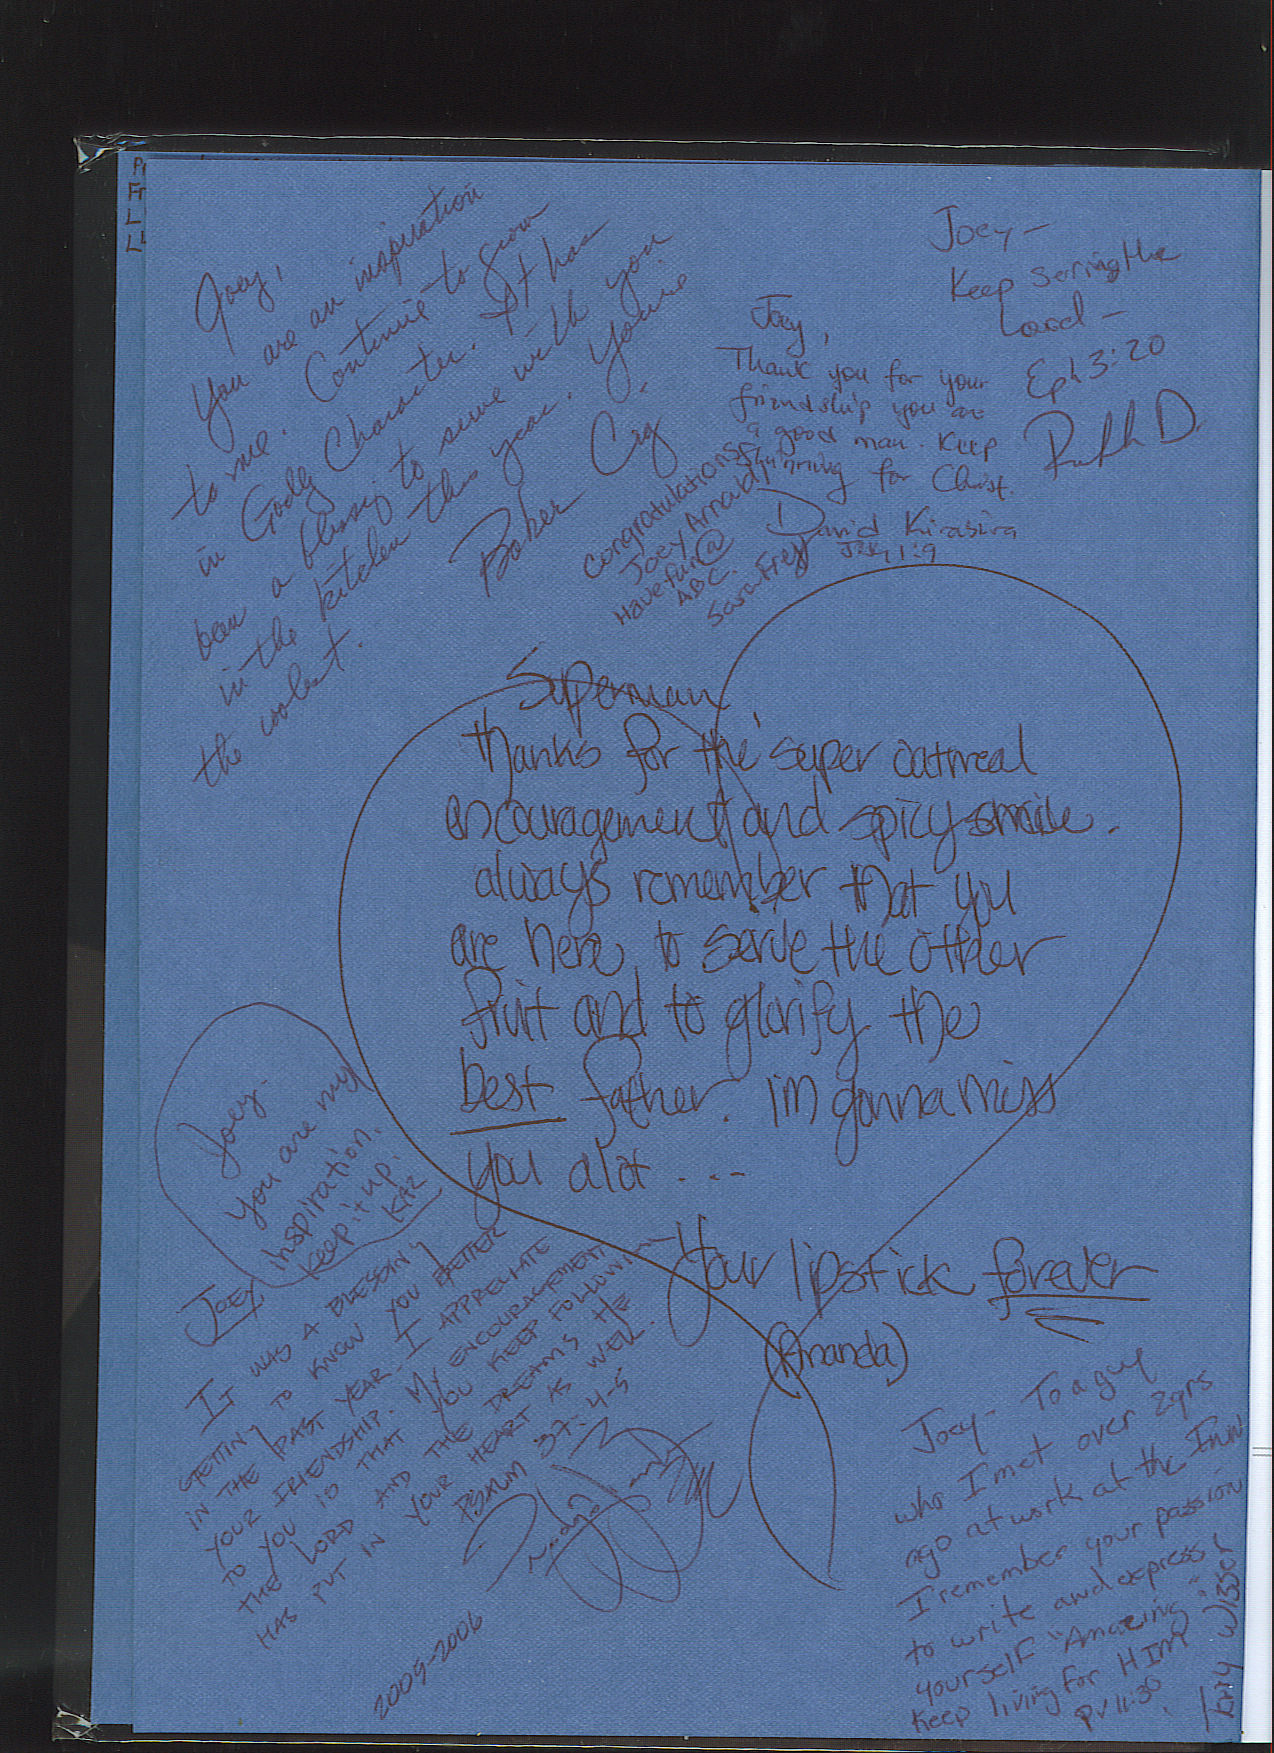 Joey,
You are an inspiration
to me. Continue to grow
in Godly Character. It has
been a blessing to serve with you
in the kitchen this year. You're
the coolest.
Baker
Joey -
Keep serving the
Lord -
Eph 3:20
D.
Joey,
Thank you for your
friendship you are
a good man. Keep
running for Christ.
David Kirasira
1:9
Congratulations
Joey Arnold!
Have fun @
ABC.
Sara Frey
Superman,
thanks for the super oatmeal
encouragement and spicy smile.
always remember that you
are here to serve the other
fruit and to glorify the
best father. im gonna miss
you alot ...
Your lipstick forever
(Amanda)
Joey-
you are my
inspiration.
keep it up.
Joey,
It was a blessing
getting to know you better
in the past year. I appreciate
your friendship. My encouragement
to you is that you keep following
the Lord and the dreams He
has put in your heart as well.
Psalm 37:4-5
2005-2006
Joey - To a guy
who I met over 2yrs
ago at work at the Inn
I remember your passion
to write and express
yourself "Amazing"
Keep living for HIM!
Pv 11:30